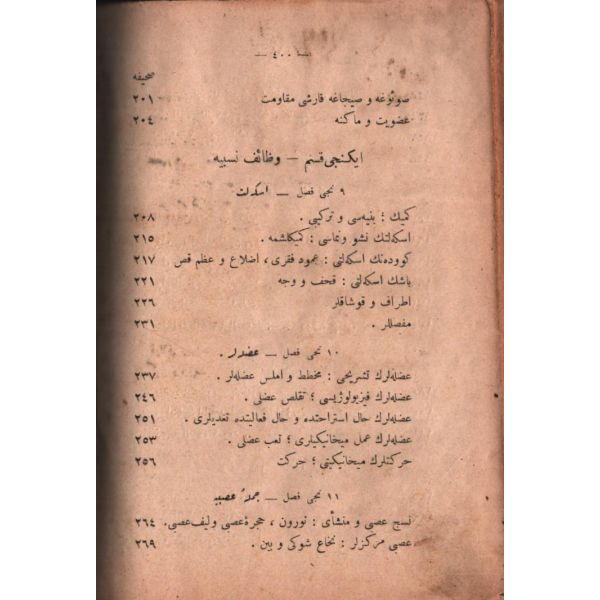 — ٤٠٠ —
صحيفه
صوئوغه و صيجاغه قارشی مقاومت ٢٠١
عضويت و ماكنه ٢٠٤
ايكنجی قسم — وظائف نسبيه
٩ نجی فصل — اسكلت
كميك ؛ بنيه‌سی و تركيبی . ٢٠٨
اسكلتك نشو ونماسی : كميكلشمه . ٢١٥
كووده‌نك اسكلتی : عمود فقری ، اضلاع و عظم قص ٢١٧
باشك اسكلتی : قحف و وجه ٢٢١
اطراف و قوشاقلر ٢٢٦
مفصللر . ٢٣١
١٠ نجی فصل — عضلەلر .
عضله‌لرك تشريحی : مخطط و املس عضله‌لر . ٢٣٧
عضله‌لرك فيزيولوژيسی ؛ تقلص عضلی . ٢٤٦
عضله‌لرك حال استراحتده و حال فعاليتده تغديلری . ٢٥١
عضله‌لرك عمل ميخانيكيلری ؛ تعب عضلی . ٢٥٣
حركتلرك ميخانيكيتی ؛ حركت ٢٥٦
١١ نجی فصل — جملهٔ عصبيه
نسج عصبی و منشأی : نورون ، حجرهٔ عصبی و ليف عصبی. ٢٦٤
عصبی مركزلر : نخاع شوكی و بين . ٢٦٩